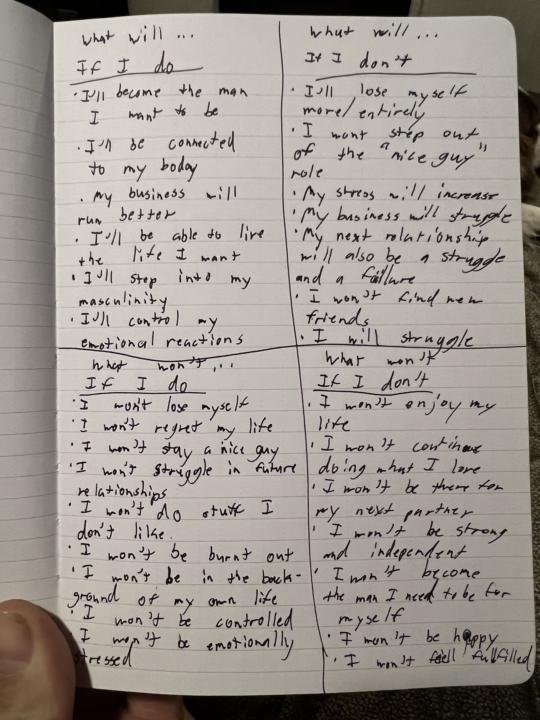 what will ...
If I do
• I'll become the man
I want to be
• I'll be connected
to my boday
• my business will
run better
• I'll be able to live
the life I want
• I'll step into my
masculinity
• I'll control my
emotional reactions
what will ...
If I don't
• I'll lose myself
more/entirely
• I wont step out
of the "nice guy"
role
• My stress will increase
• My business will struggle
• My next relationship
will also be a struggle
and a failure
• I won't find new
friends
• I will struggle
what won't ...
If I do
• I won't lose myself
• I won't regret my life
• I won't stay a nice guy
• I won't struggle in future
relationships
• I won't do stuff I
don't like.
• I won't be burnt out
• I won't be in the back-
ground of my own life
• I won't be controlled
• I won't be emotionally
stressed
What won't
If I don't
• I won't enjoy my
life
• I won't continue
doing what I love
• I won't be there for
my next partner
• I won't be strong
and independent
• I won't become
the man I need to be for
myself
• I won't be happy
• I won't feel fulfilled